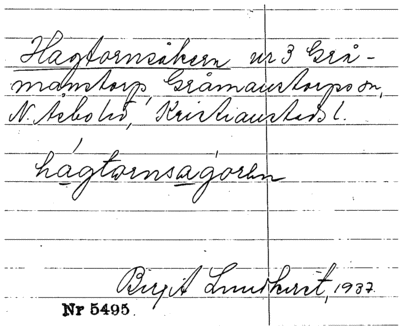 Hagtornsåkern nr 3 Grå-
manstorp, Gråmanstorps sn,
N. Åsbo hd, Kristianstads l.
hágtornsagóren
Birgit Lundkvist, 1937.
Nr 5495.